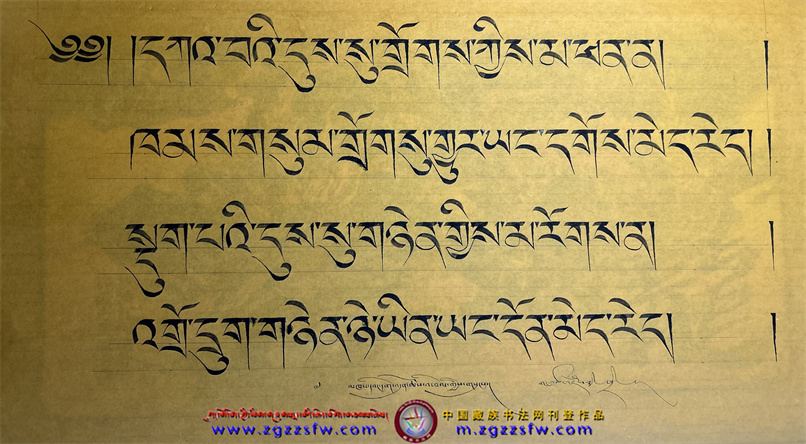 ༄༅། །དཀའ་བའི་དུས་སུ་གྲོགས་ཀྱིས་མ་ཕན་ན། །
ཁམས་གསུམ་གྲོགས་སུ་གྱུར་ཡང་དགོས་མེད་རེད། །
སྡུག་པའི་དུས་སུ་གཉེན་གྱིས་མ་རོགས་ན། །
འགྲོ་དྲུག་གཉེན་ཉེ་ཡིན་ཡང་དོན་མེད་རེད། །
中国藏族书法网刊登作品
www.zgzzsfw.com m.zgzzsfw.com